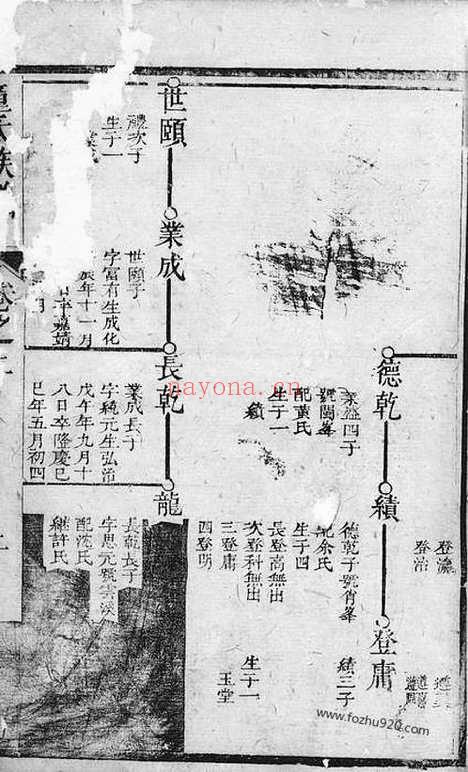 登瀛
登治
德乾
業益四子
號閩峰
配黃氏
生子一
績
績
德乾子號肖峰
配余氏
生子四
長登高無出
次登科無出
三登庸
四登明
登庸
績三子
生子一
玉堂
世頤
生子一
業成
世頤子
字富有生成化
辰年十一月
日卒嘉靖
長乾
業成長子
字純元生弘治
戊午年九月十
八日卒隆慶己
巳年五月初四
龍
長乾長子
字思元號雲溪
配沈氏
繼許氏
nayona.cn
www.fozhu920.com